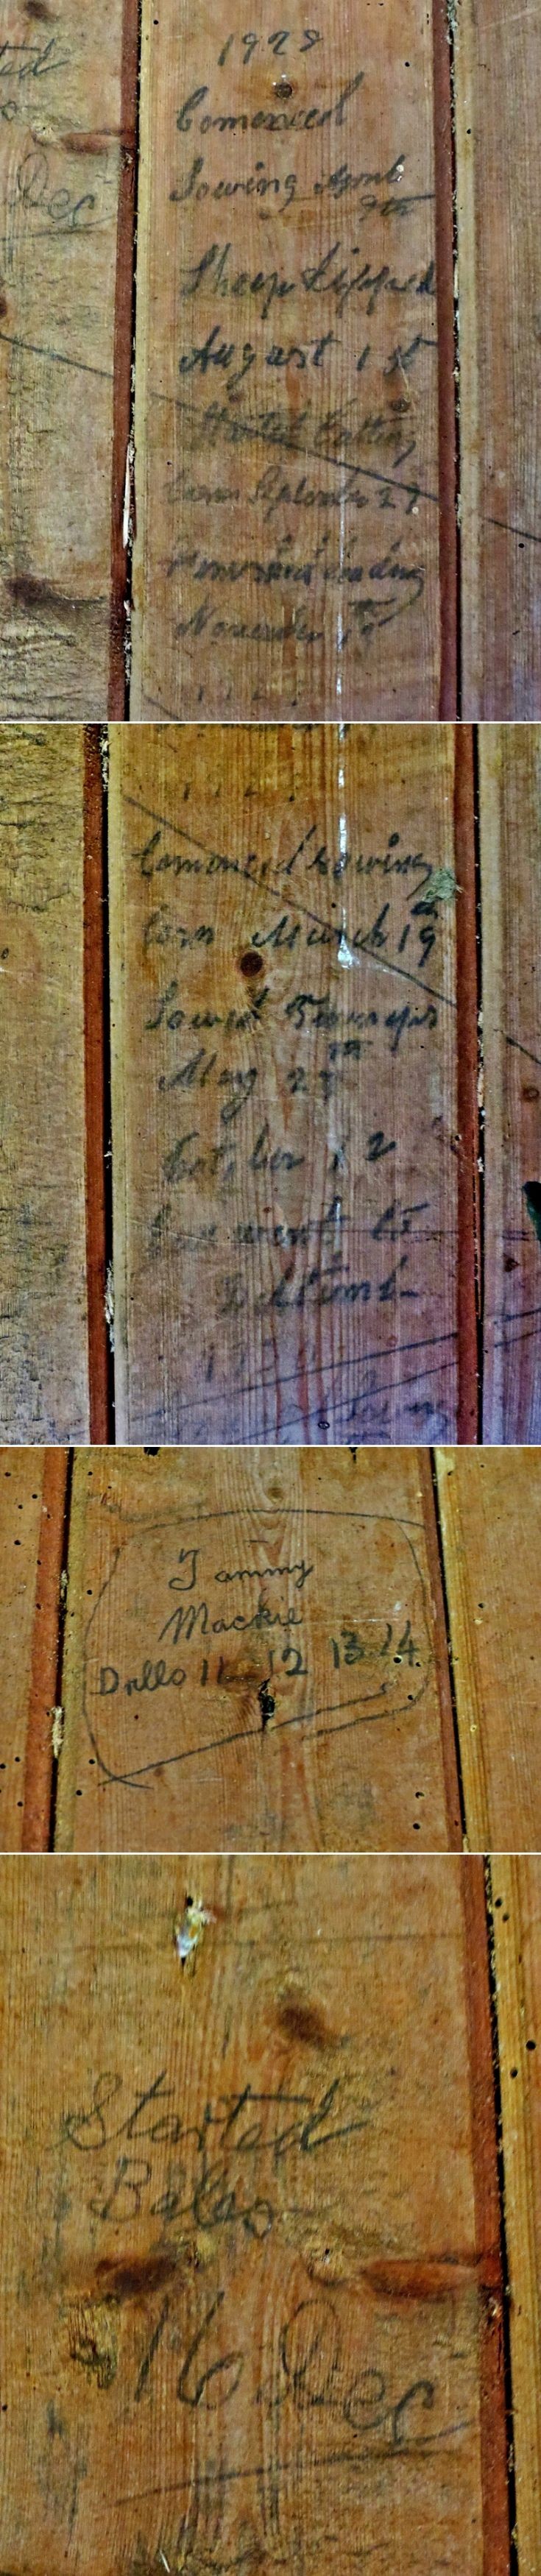 ted
Dec
1928
Comenced
Sowing April
9th
Sheep dipped
August 1st
Started Cutting
Corn September 27
leading
November
Comenced sowing
Corn March 19th
Sowed Turnips
May 27th
October 12
went to
1 1
Tammy
Mackie
Drills 11 12 13 14
Started
Bales
16 Dec